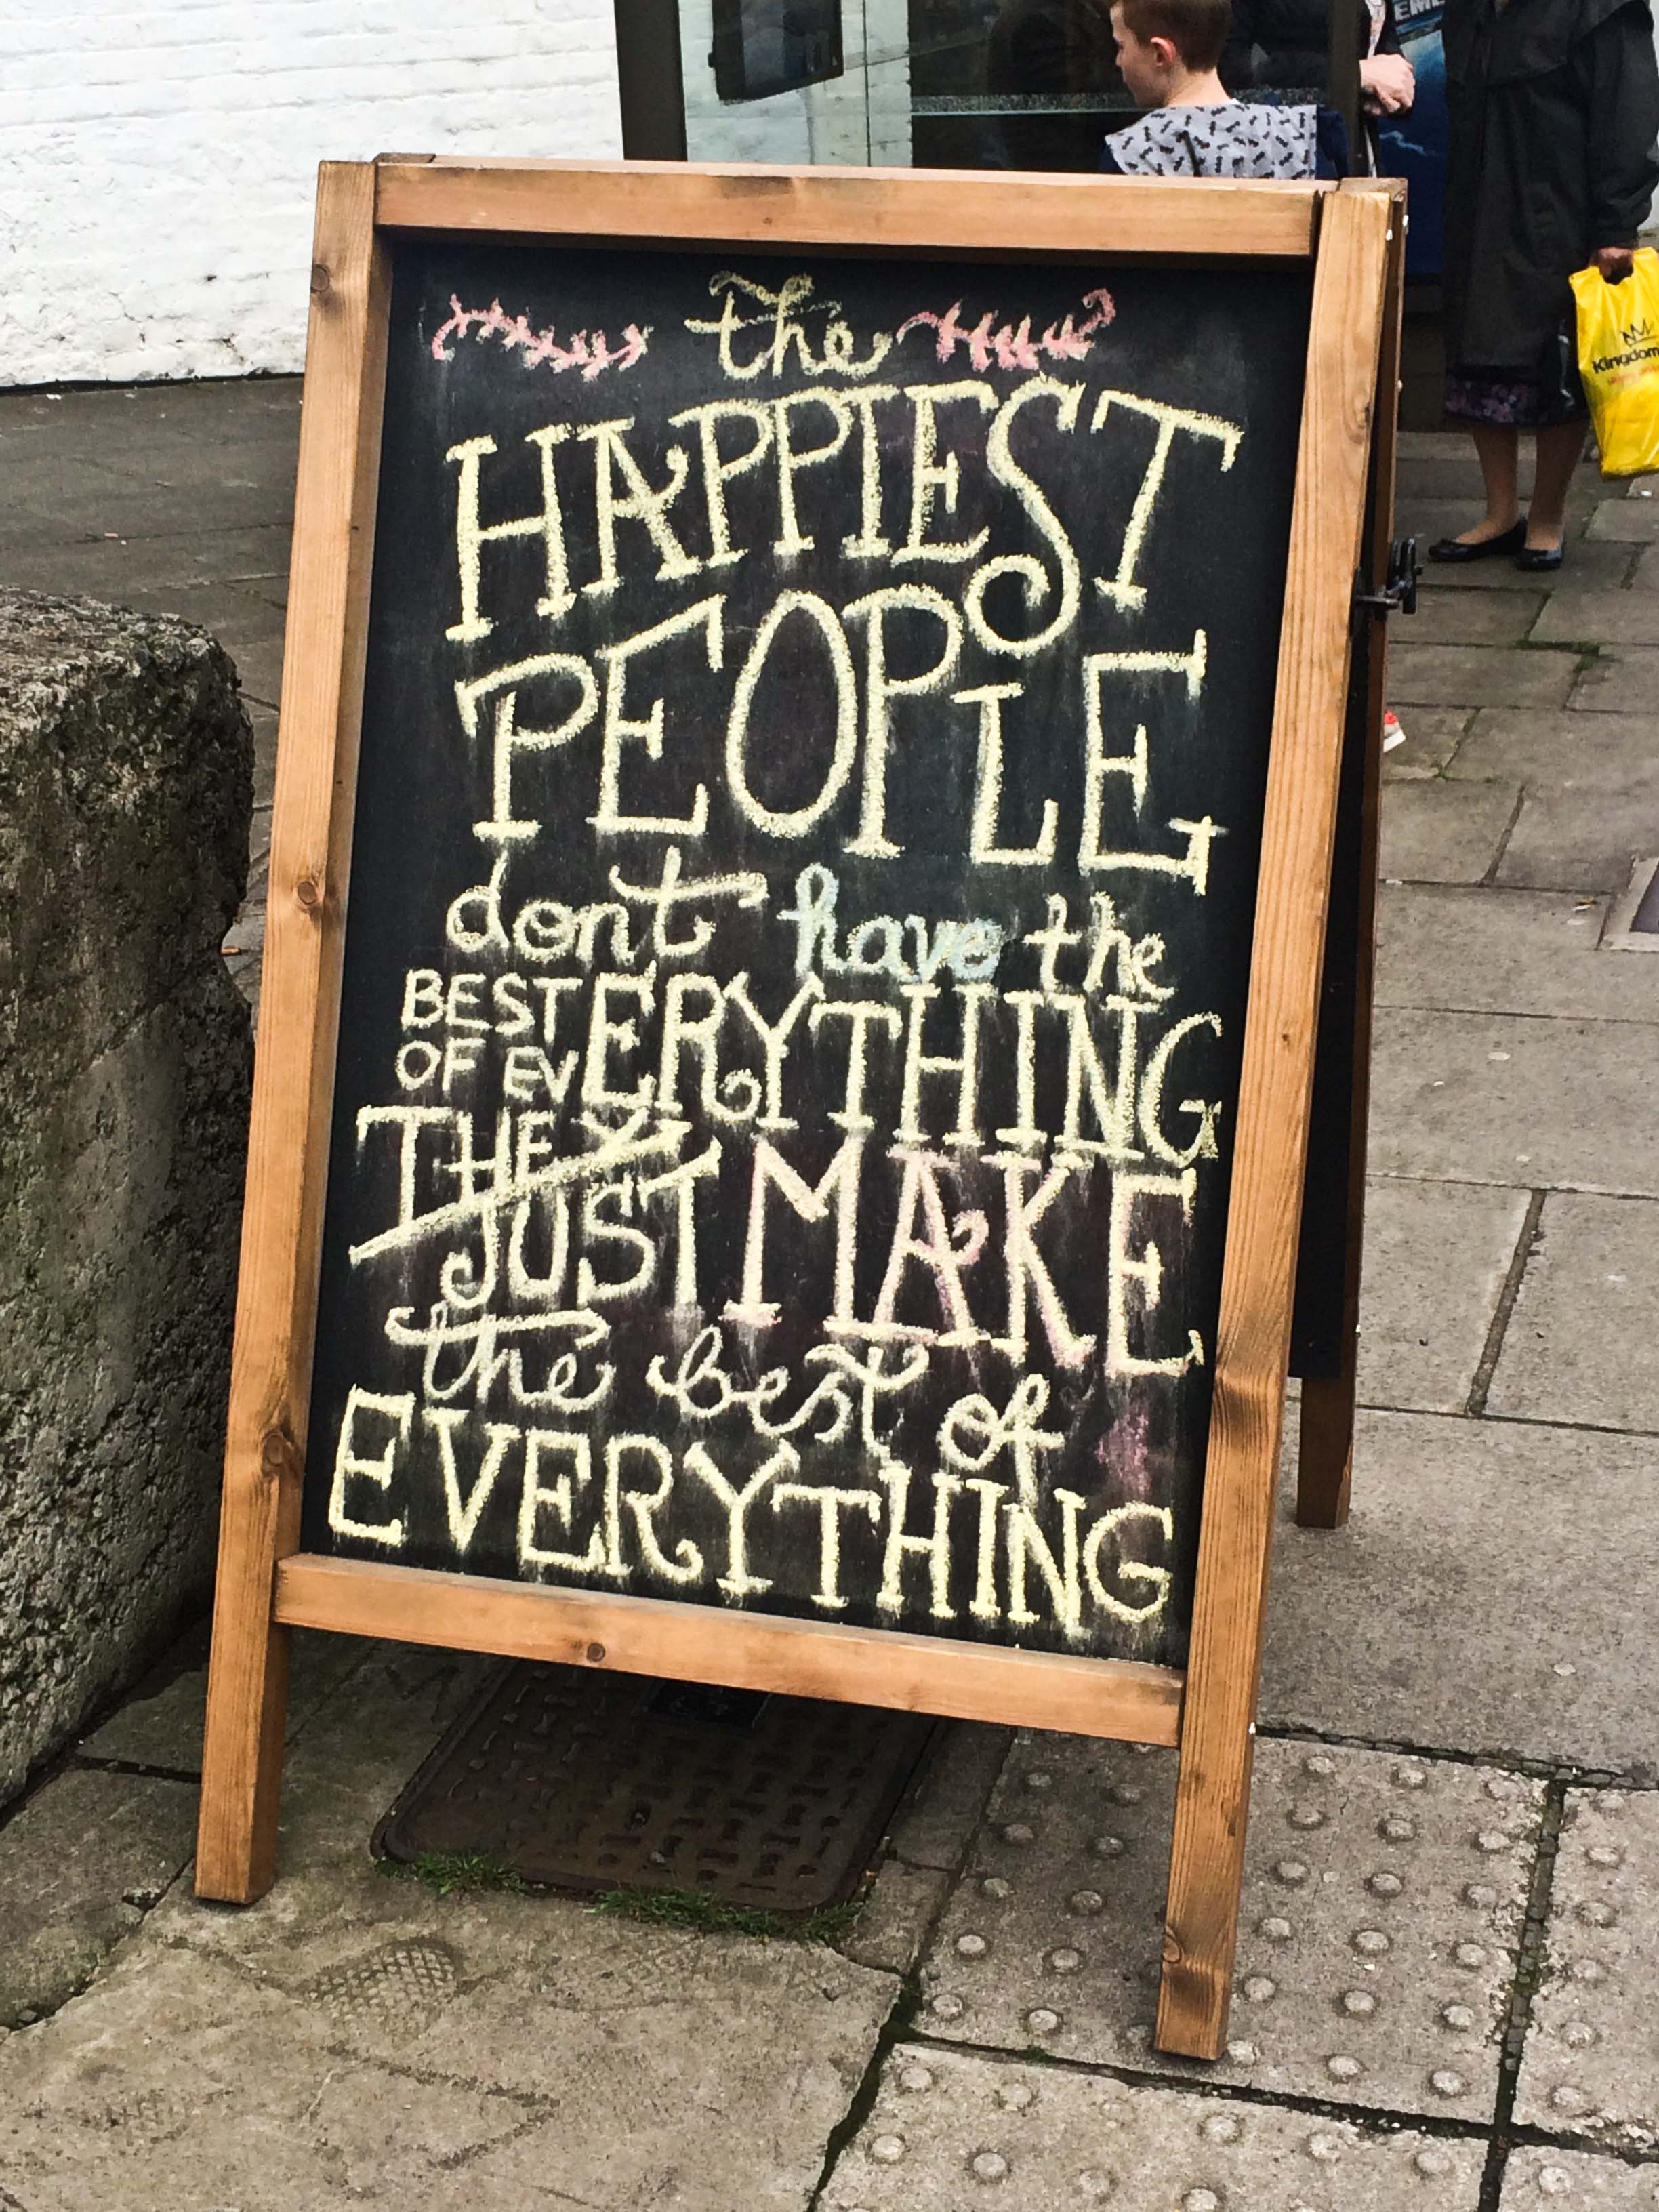 the
HAPPIEST
PEOPLE
dont have the
BEST
OF EVERYTHING
THEY
JUST MAKE
the best of
EVERYTHING
EME
Kingdom